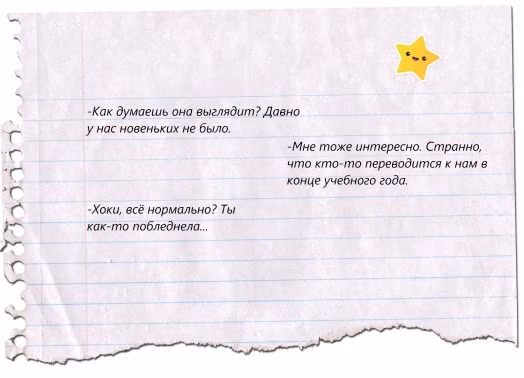 -Как думаешь она выглядит? Давно
у нас новеньких не было.
-Мне тоже интересно. Странно,
что кто-то переводится к нам в
конце учебного года.
-Хоки, всё нормально? Ты
как-то побледнела...